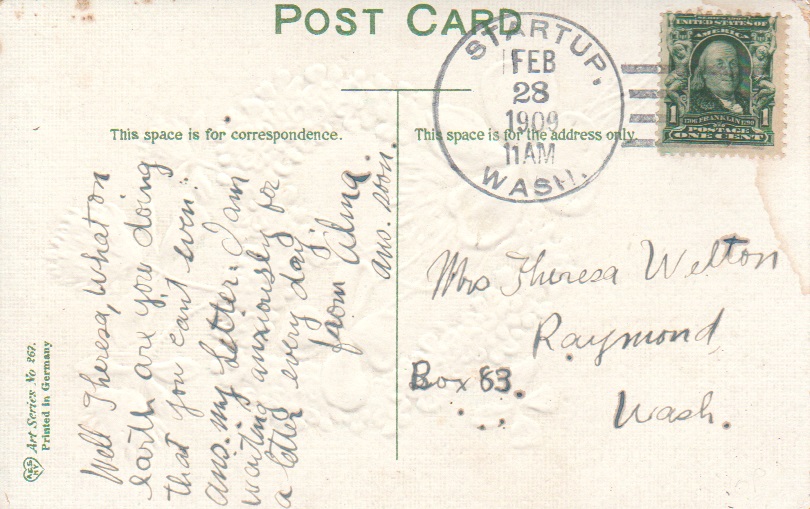 POST CARD
STARTUP,
FEB
28
1909
11AM
WASH.
UNITED STATES OF
AMERICA
1 1
FRANKLIN
POSTAGE
ONE CENT
This space is for correspondence.
This space is for the address only.
Well Theresa, what on
earth are you doing
that you can't even
ans. my letter. I am
waiting anxiously for
a letter every day
from Alma.
ans. soon.
Mrs Theresa Welton
Raymond
Box 63.
Wash.
Art Series No 267.
Printed in Germany